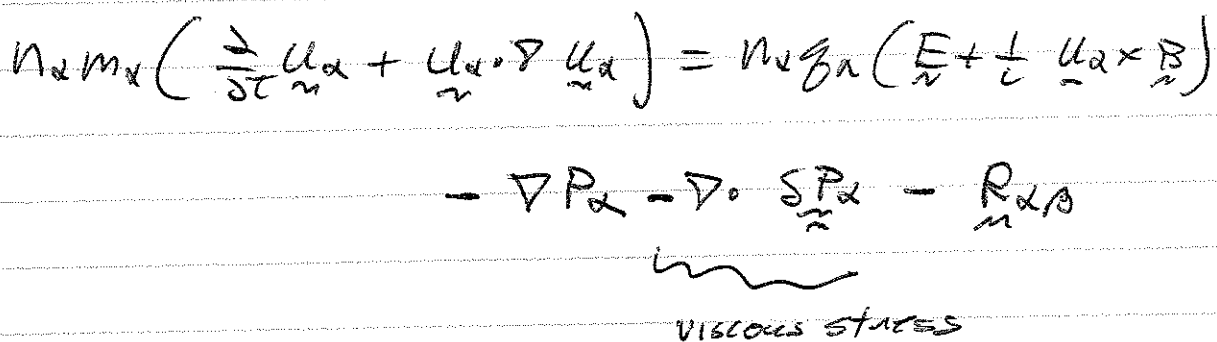 n_α m_α ( ∂/∂t u_α + u_α · ∇ u_α ) = n_α q_α ( E + 1/c u_α × B )
− ∇P_α − ∇ · δP_α − R_αβ
viscous stress